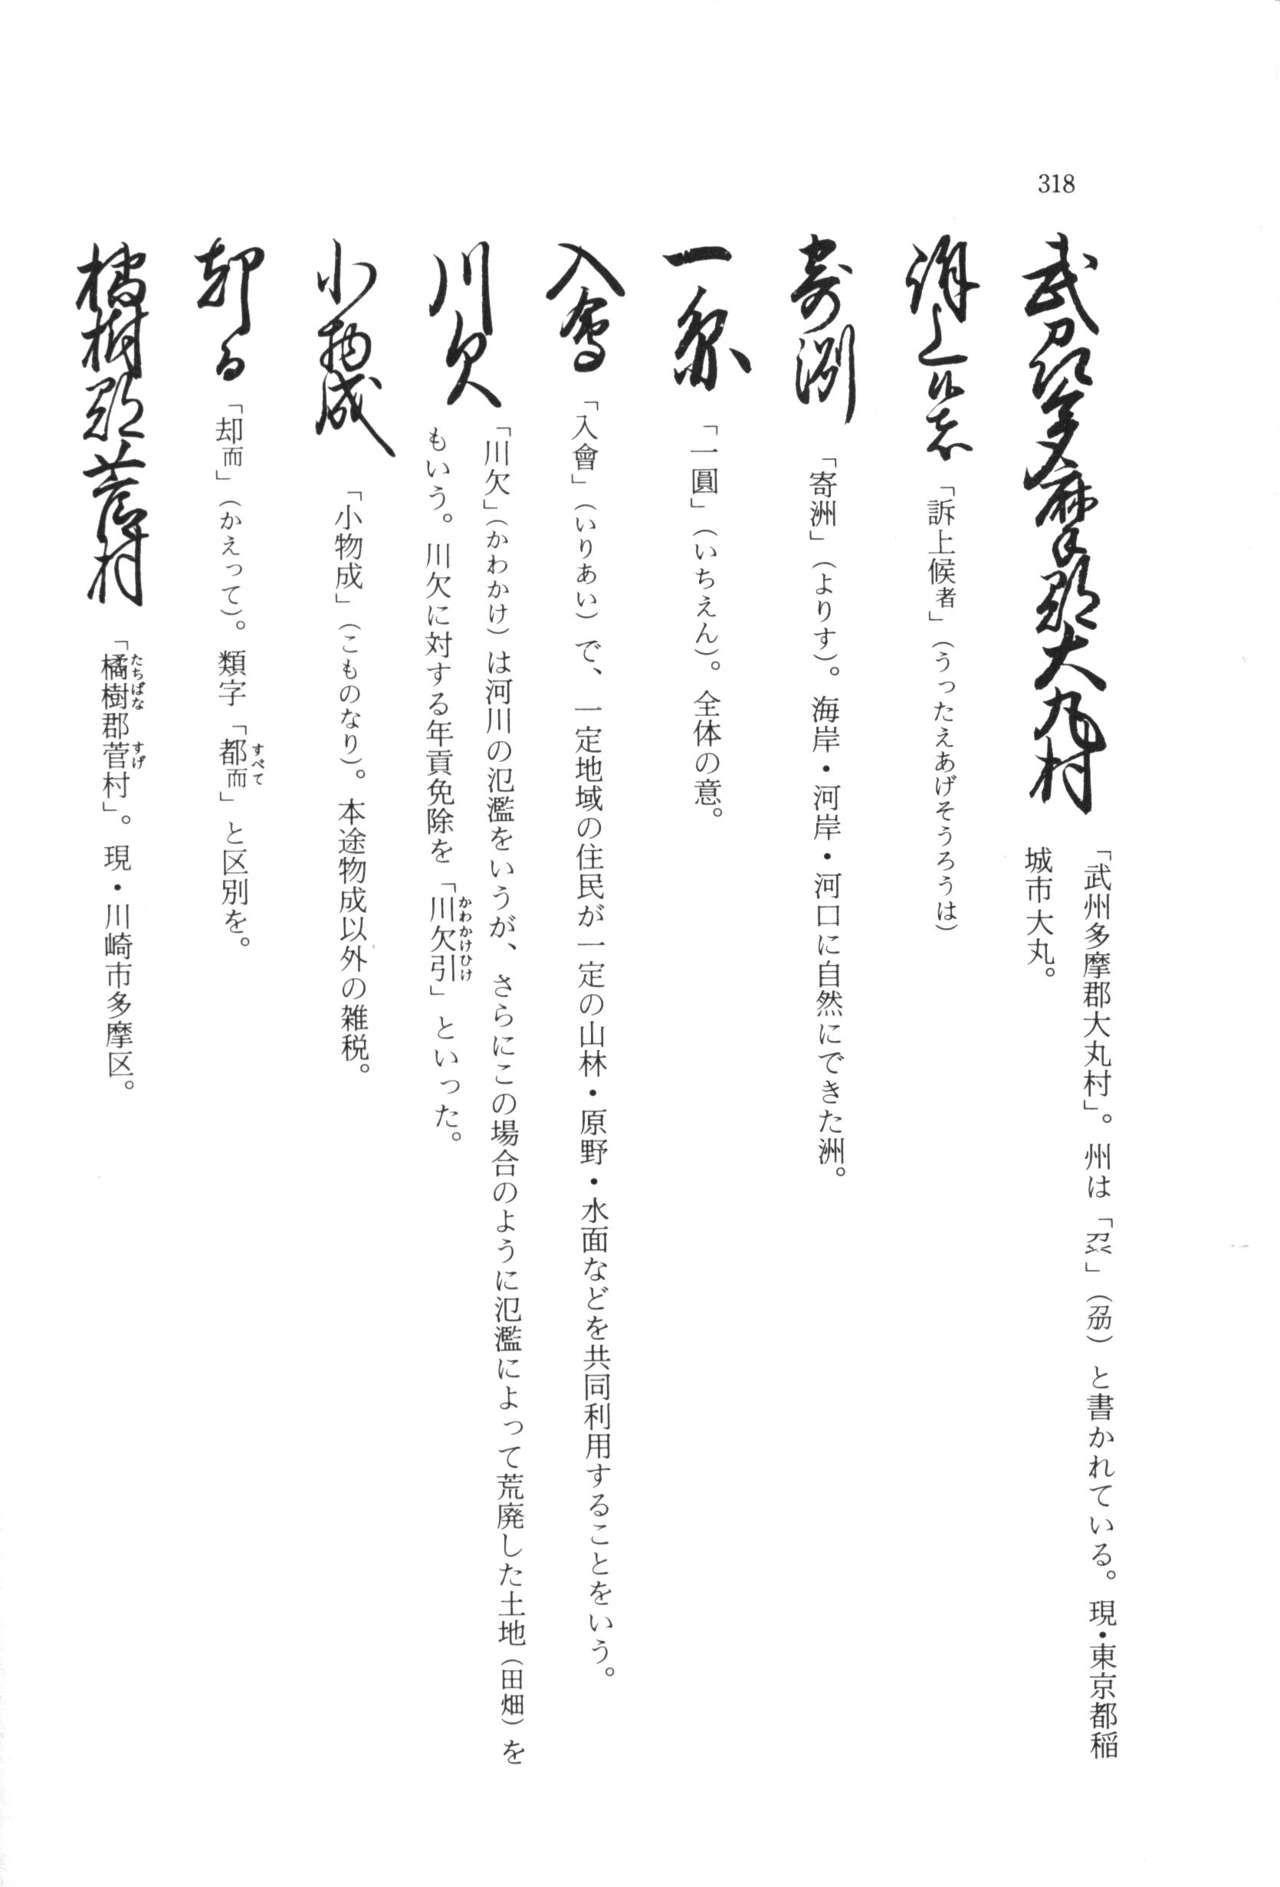 318
武州多摩郡大丸村
「武州多摩郡大丸村」。州は「刕」（刕）と書かれている。現・東京都稲
城市大丸。
訴上候者
「訴上候者」（うったえあげそうろうは）
寄洲
「寄洲」（よりす）。海岸・河岸・河口に自然にできた洲。
一圓
「一圓」（いちえん）。全体の意。
入會
「入會」（いりあい）で、一定地域の住民が一定の山林・原野・水面などを共同利用することをいう。
川欠
「川欠」（かわかけ）は河川の氾濫をいうが、さらにこの場合のように氾濫によって荒廃した土地（田畑）を
もいう。川欠に対する年貢免除を「川欠引」といった。
かわかけひけ
小物成
「小物成」（こものなり）。本途物成以外の雑税。
却而
「却而」（かえって）。類字「都而」と区別を。
すべて
橘樹郡菅村
「橘樹郡菅村」。現・川崎市多摩区。
たちばな すげ